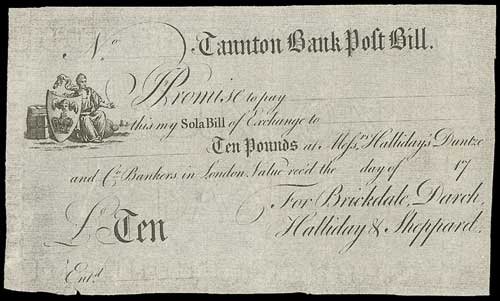 No
Taunton Bank Post Bill.
Promise to pay
this my Sola Bill of Exchange to
Ten Pounds at Messrs. Halliday's Duntze
and Co. Bankers in London Value rec'd the day of 17
For Brickdale, Darch,
£ Ten
Halliday & Sheppard.
Entd.